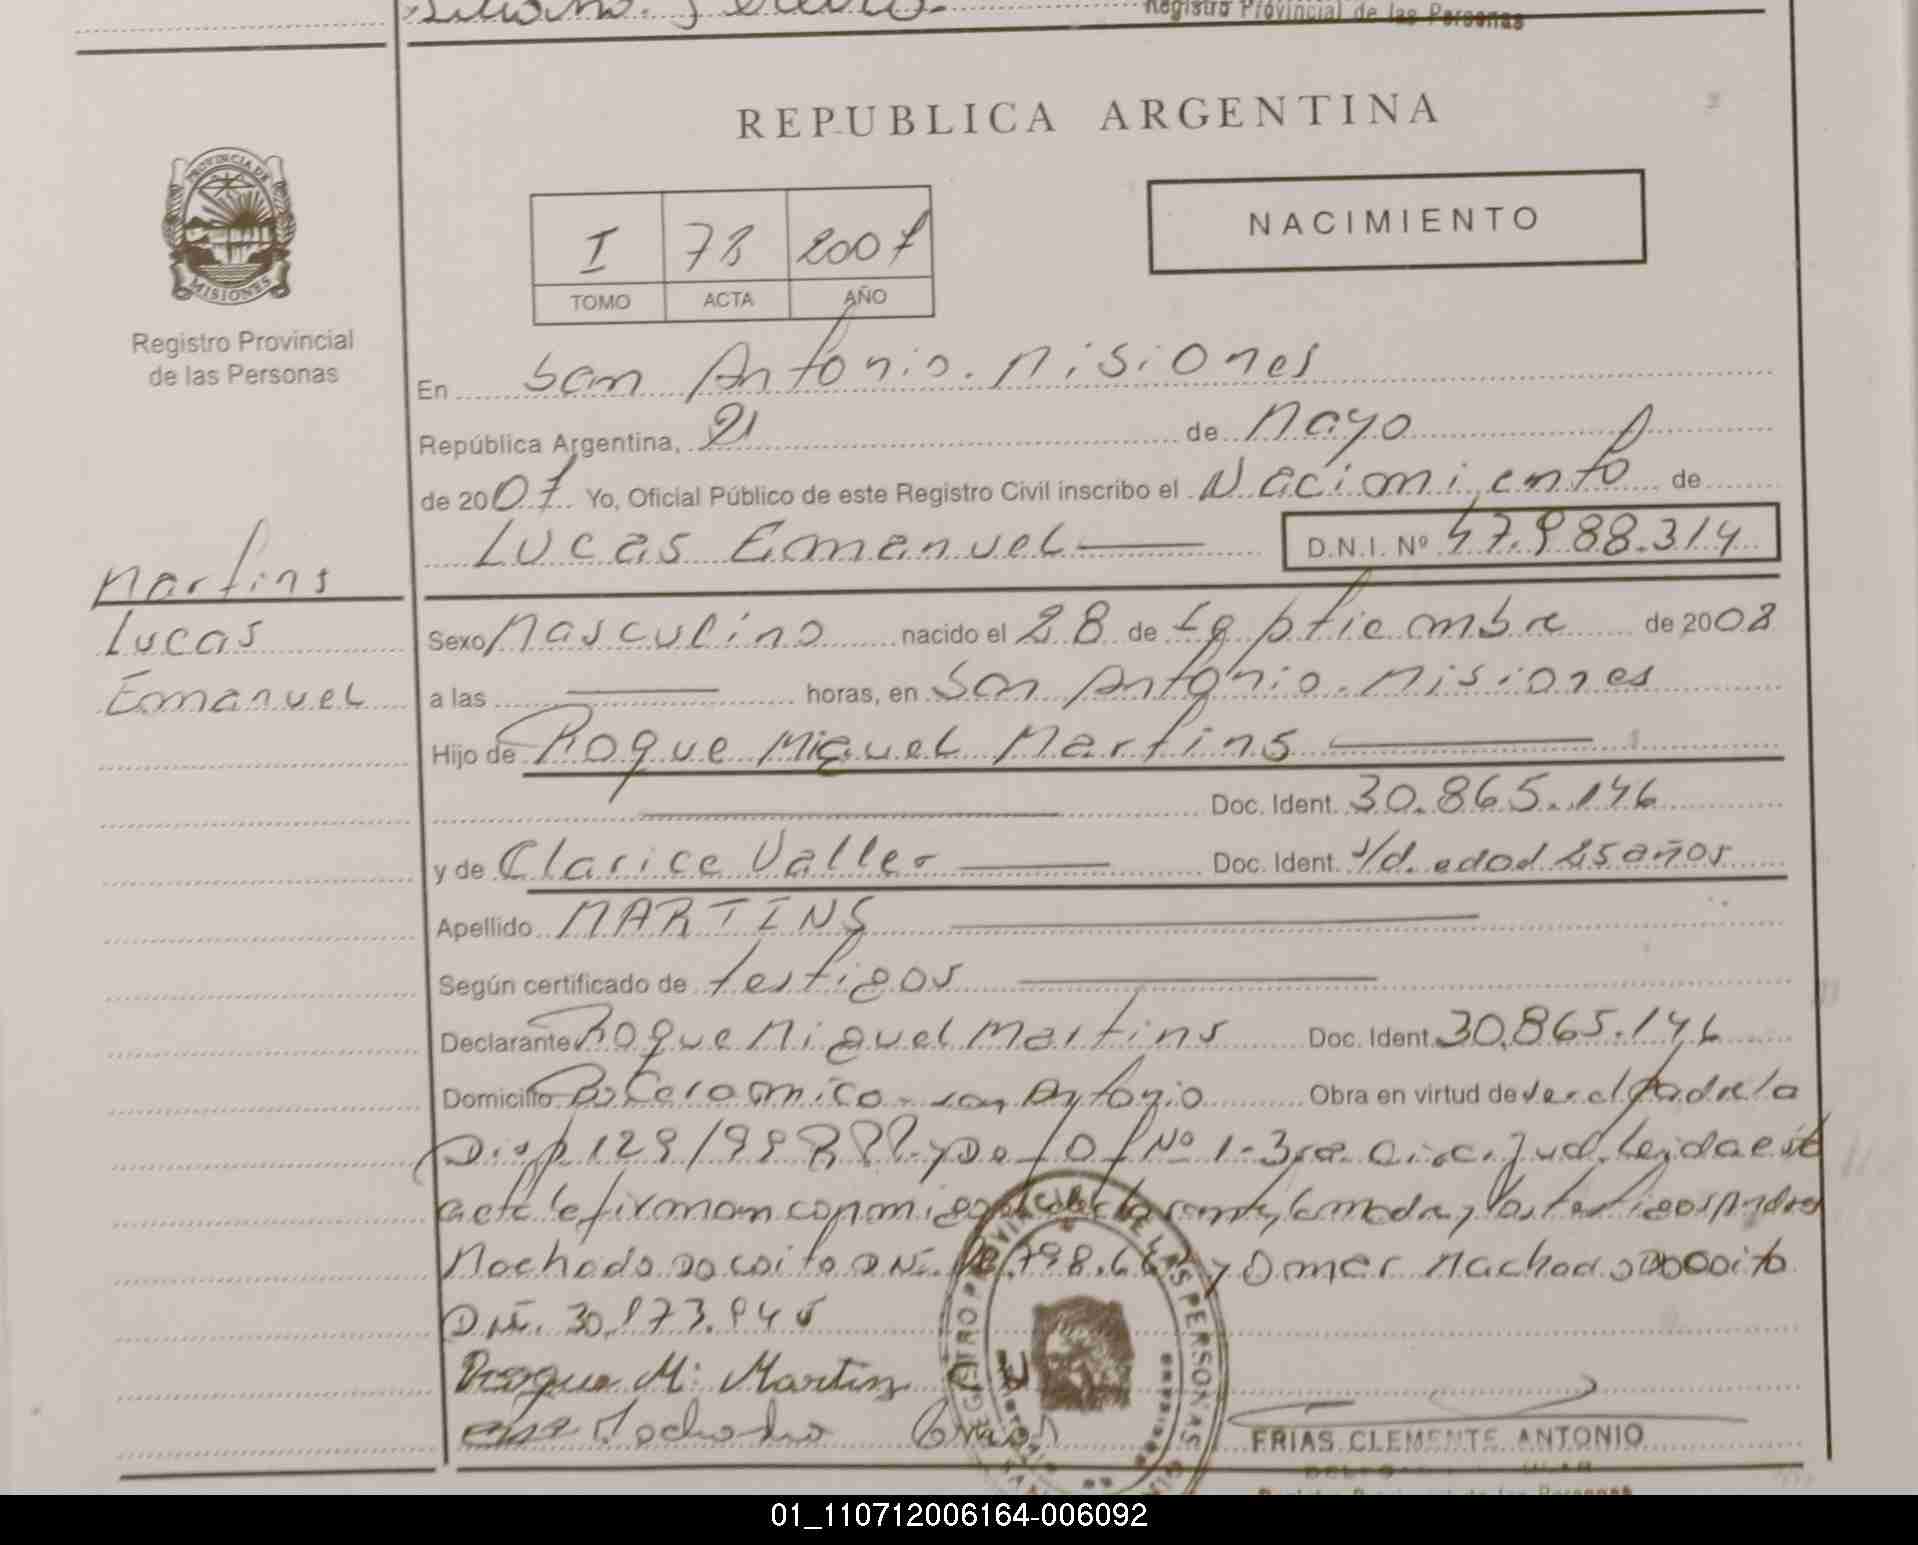 Registro Provincial de las Personas
REPUBLICA ARGENTINA
NACIMIENTO
I 78 2007
TOMO ACTA AÑO
PROVINCIA DE MISIONES
Registro Provincial
de las Personas
En San Antonio. Misiones
República Argentina, 21 de Mayo
de 2007 Yo, Oficial Público de este Registro Civil inscribo el Nacimiento de
Lucas Emanuel D.N.I. Nº 47.988.314
Martins
Lucas
Emanuel
Sexo Masculino nacido el 28 de Septiembre de 2003
a las horas, en San Antonio. Misiones
Hijo de Roque Miguel Martins
Doc. Ident. 30.865.146
y de Clarice Valler Doc. Ident. s/d. edad 25 años
Apellido MARTINS
Según certificado de testigos
Declarante Roque Miguel Martins Doc. Ident. 30.865.146
Domicilio Ceramica - San Antonio Obra en virtud de ser el padre la
Disp 129/99 RPP. y Def Of Nº 1-3ra Circ. Jud. Leida este
acta le firman conmigo el declarante, la madre y los testigos Andres
Machado Do Coito DNI. .798.66 y Omar Machado Do Coito
DNI. 30.873.945
Roque M. Martins
Machado
REGISTRO PROVINCIAL DE LAS PERSONAS
FRIAS CLEMENTE ANTONIO
Registro Provincial de las Personas
01_110712006164-006092